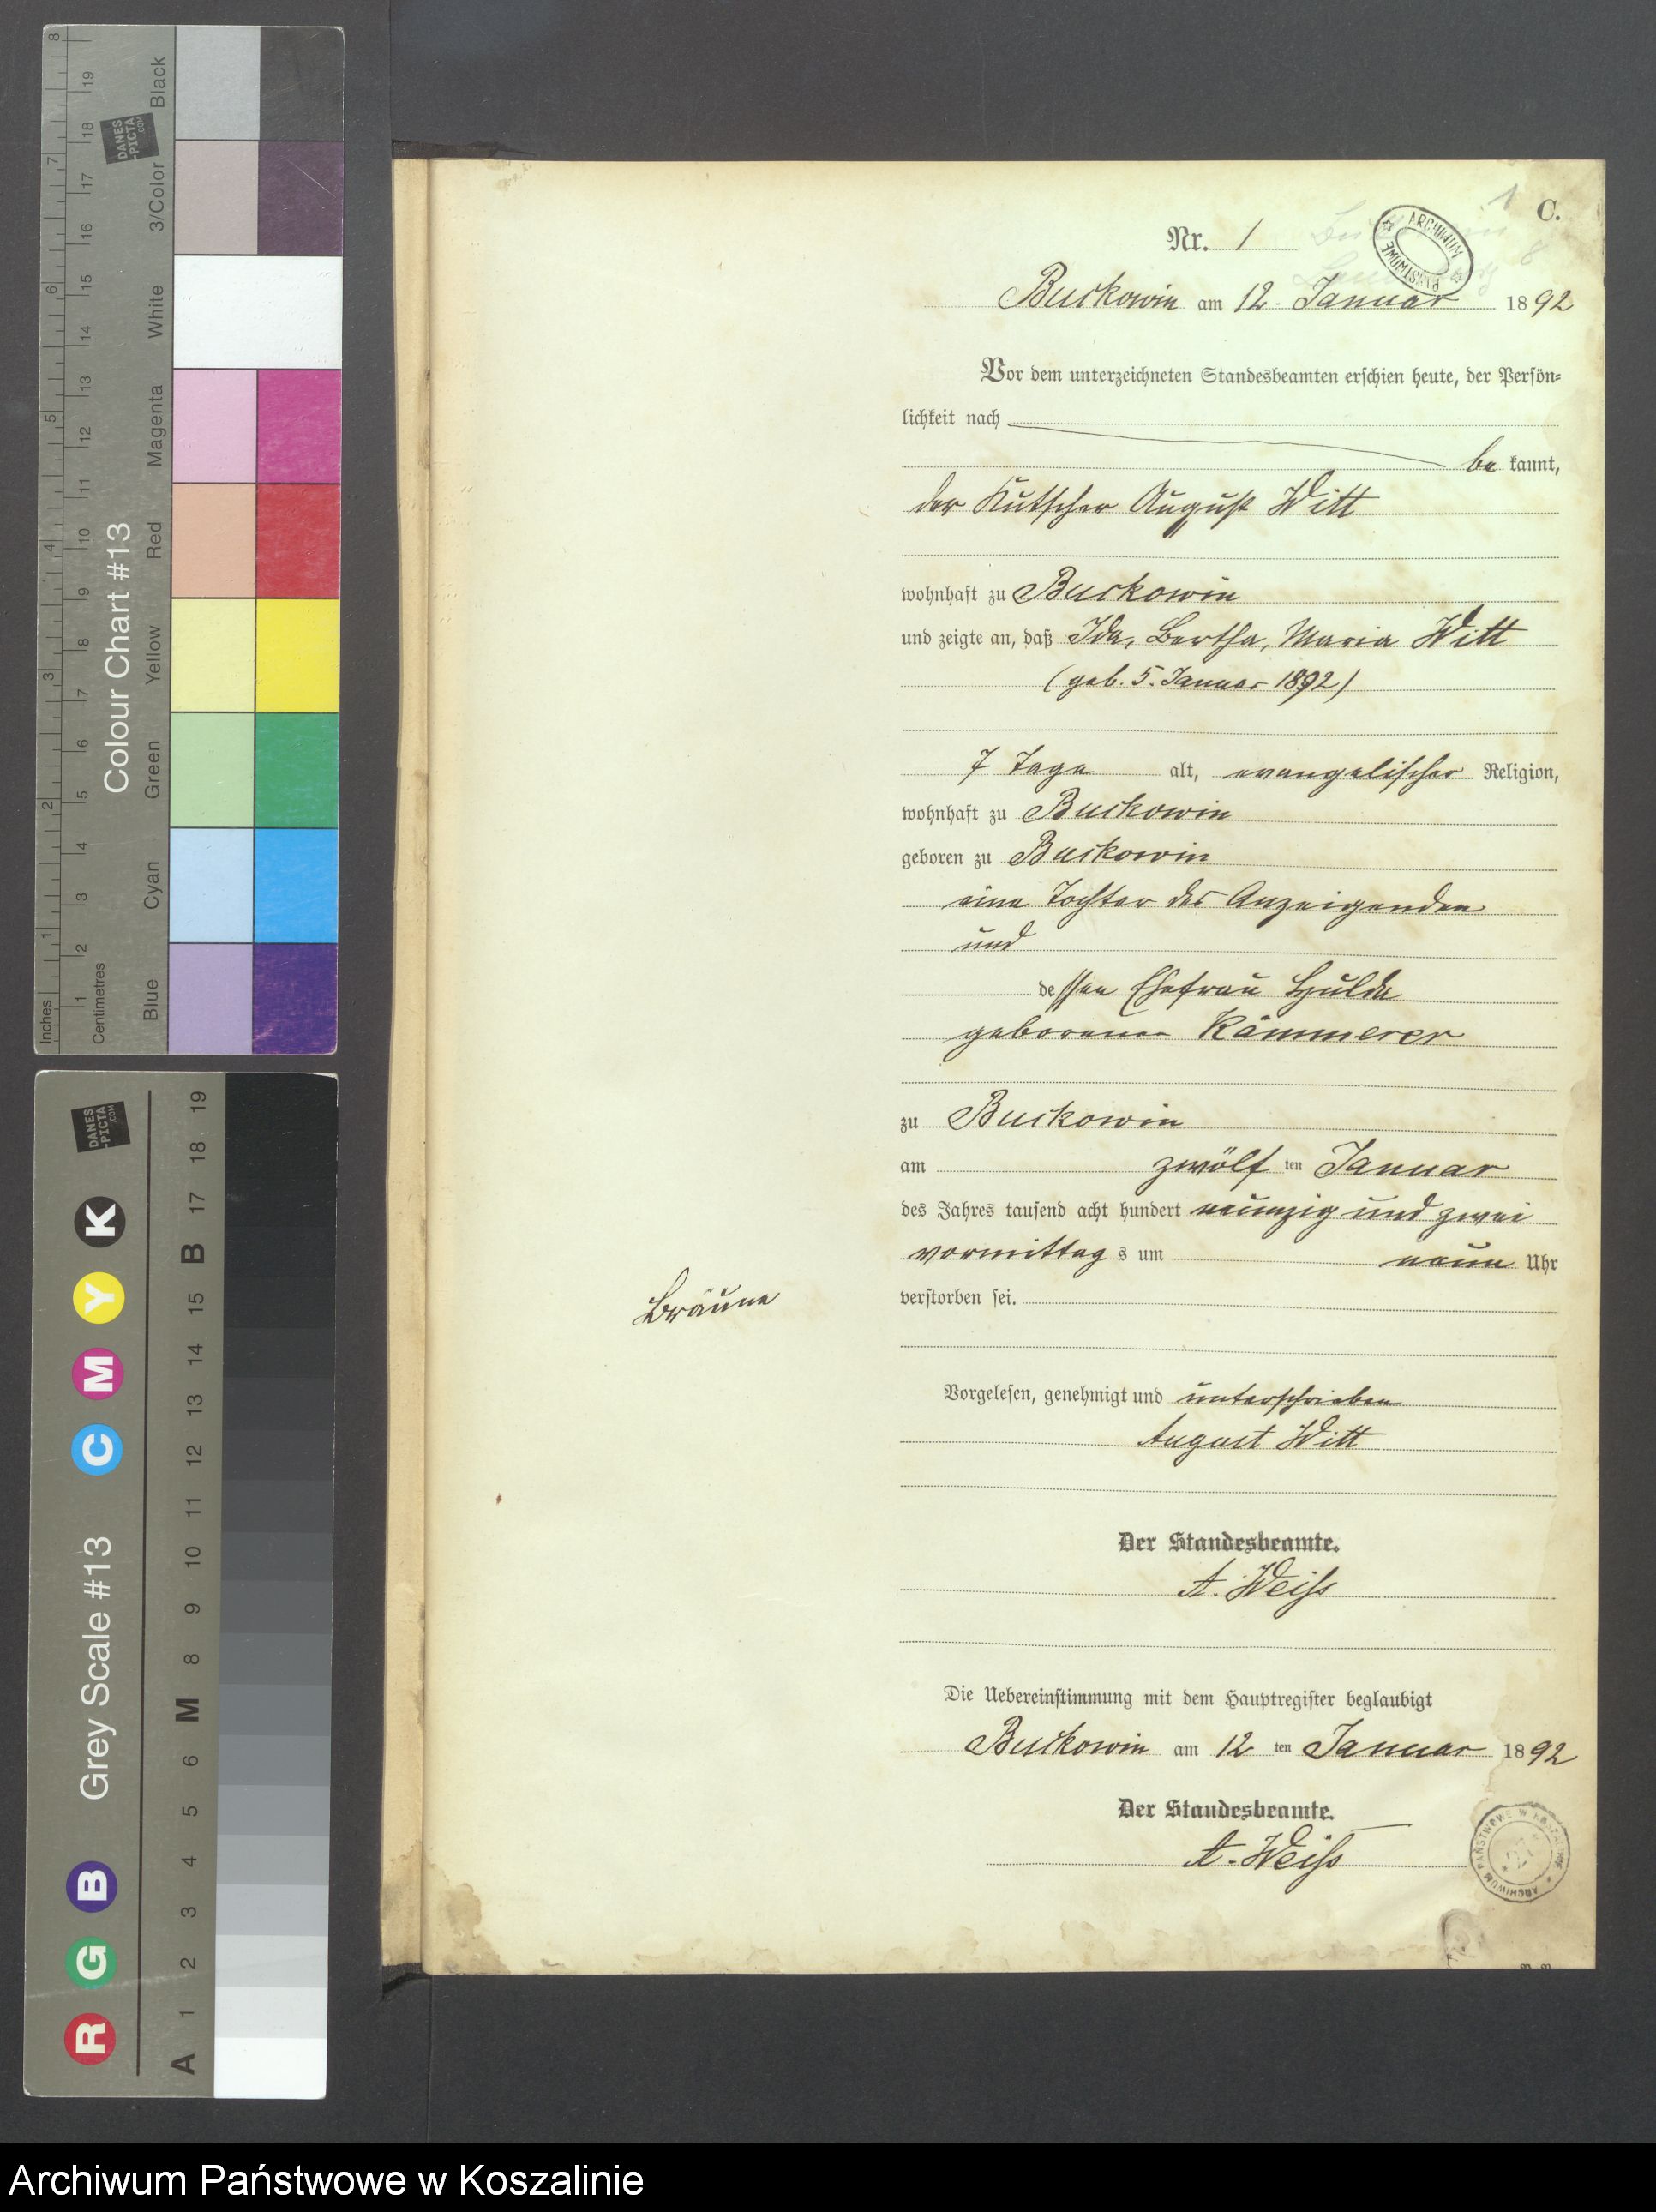 C.
1
Nr. 1
ARCHIWUM PAŃSTWOWE
Buckowin am 12. Januar 1892
Vor dem unterzeichneten Standesbeamten erschien heute, der Persön-
lichkeit nach
be kannt,
der Kutscher August Witt
wohnhaft zu Buckowin
und zeigte an, daß Ida, Bertha, Maria Witt
(geb. 5. Januar 1892)
7 Tage alt, evangelischer Religion,
wohnhaft zu Buckowin
geboren zu Buckowin
eine Tochter des Anzeigenden
und
dessen Ehefrau Hulda
geborenen Kämmerer
zu Buckowin
am zwölf ten Januar
des Jahres tausend acht hundert neunzig und zwei
vormittag s um neun Uhr
verstorben sei.
Bräune
Vorgelesen, genehmigt und unterschrieben
August Witt
Der Standesbeamte.
A. Weiß
Die Uebereinstimmung mit dem Hauptregister beglaubigt
Buckowin am 12 ten Januar 1892
Der Standesbeamte.
A. Weiß
ARCHIWUM PAŃSTWOWE W KOSZALINIE
Inches 1 2 3 4 5 6 7 8
Centimetres 1 2 3 4 5 6 7 8 9 10 11 12 13 14 15 16 17 18 19
Colour Chart #13
Blue Cyan Green Yellow Red Magenta White 3/Color Black
DANES
-PICTA
.COM
Grey Scale #13
R G B C M Y K
DANES
-PICTA
.COM
A 1 2 3 4 5 6 M 8 9 10 11 12 13 14 15 B 17 18 19
Archiwum Państwowe w Koszalinie